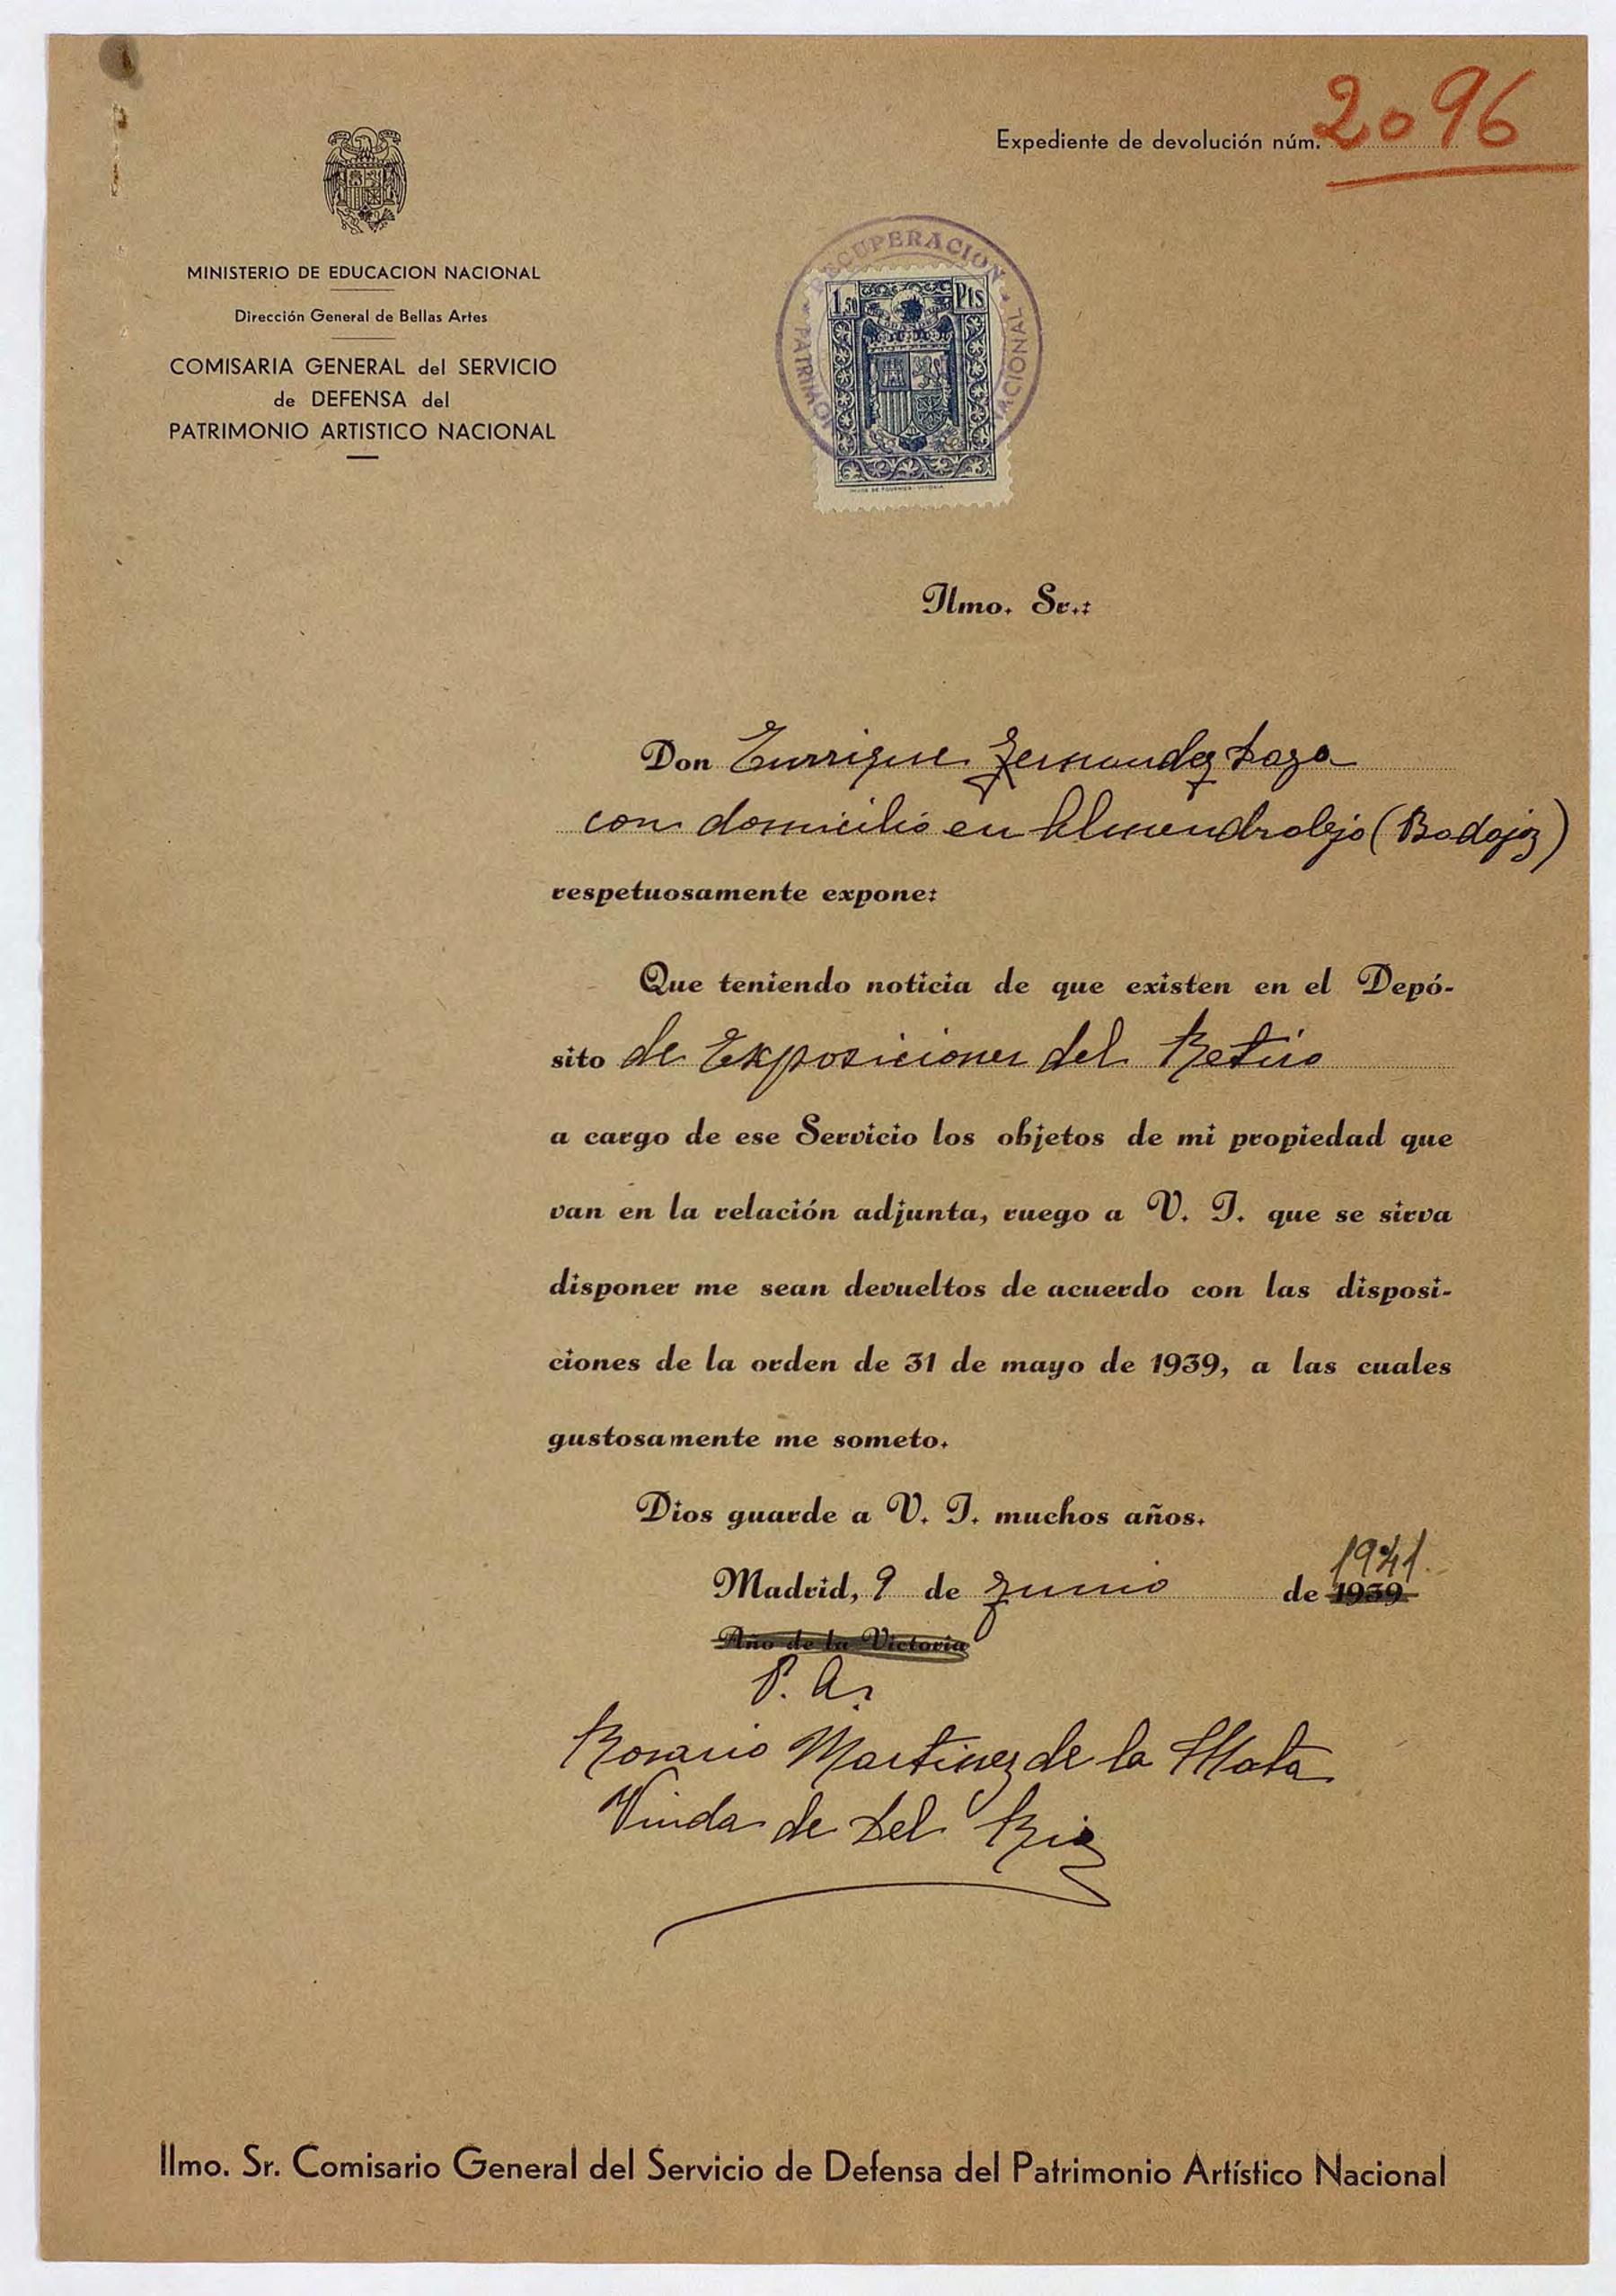 Expediente de devolución núm. 2096
MINISTERIO DE EDUCACION NACIONAL
Dirección General de Bellas Artes
COMISARIA GENERAL del SERVICIO
de DEFENSA del
PATRIMONIO ARTISTICO NACIONAL
RECUPERACION
PATRIMONIO NACIONAL
1,50 Pts
Ilmo. Sr.:
Don Enrrique Fernandez Daza
con domicilio en Almendralejo (Badajoz)
respetuosamente expone:
Que teniendo noticia de que existen en el Depó-
sito de Exposiciones del Retiro
a cargo de ese Servicio los objetos de mi propiedad que
van en la relación adjunta, ruego a V. I. que se sirva
disponer me sean devueltos de acuerdo con las disposi-
ciones de la orden de 31 de mayo de 1939, a las cuales
gustosamente me someto.
Dios guarde a V. I. muchos años.
1941.
Madrid, 9 de Junio de 1939
Año de la Victoria
P. A.
Rosario Martinez de la Mata
Viuda de Del Rio
Ilmo. Sr. Comisario General del Servicio de Defensa del Patrimonio Artístico Nacional